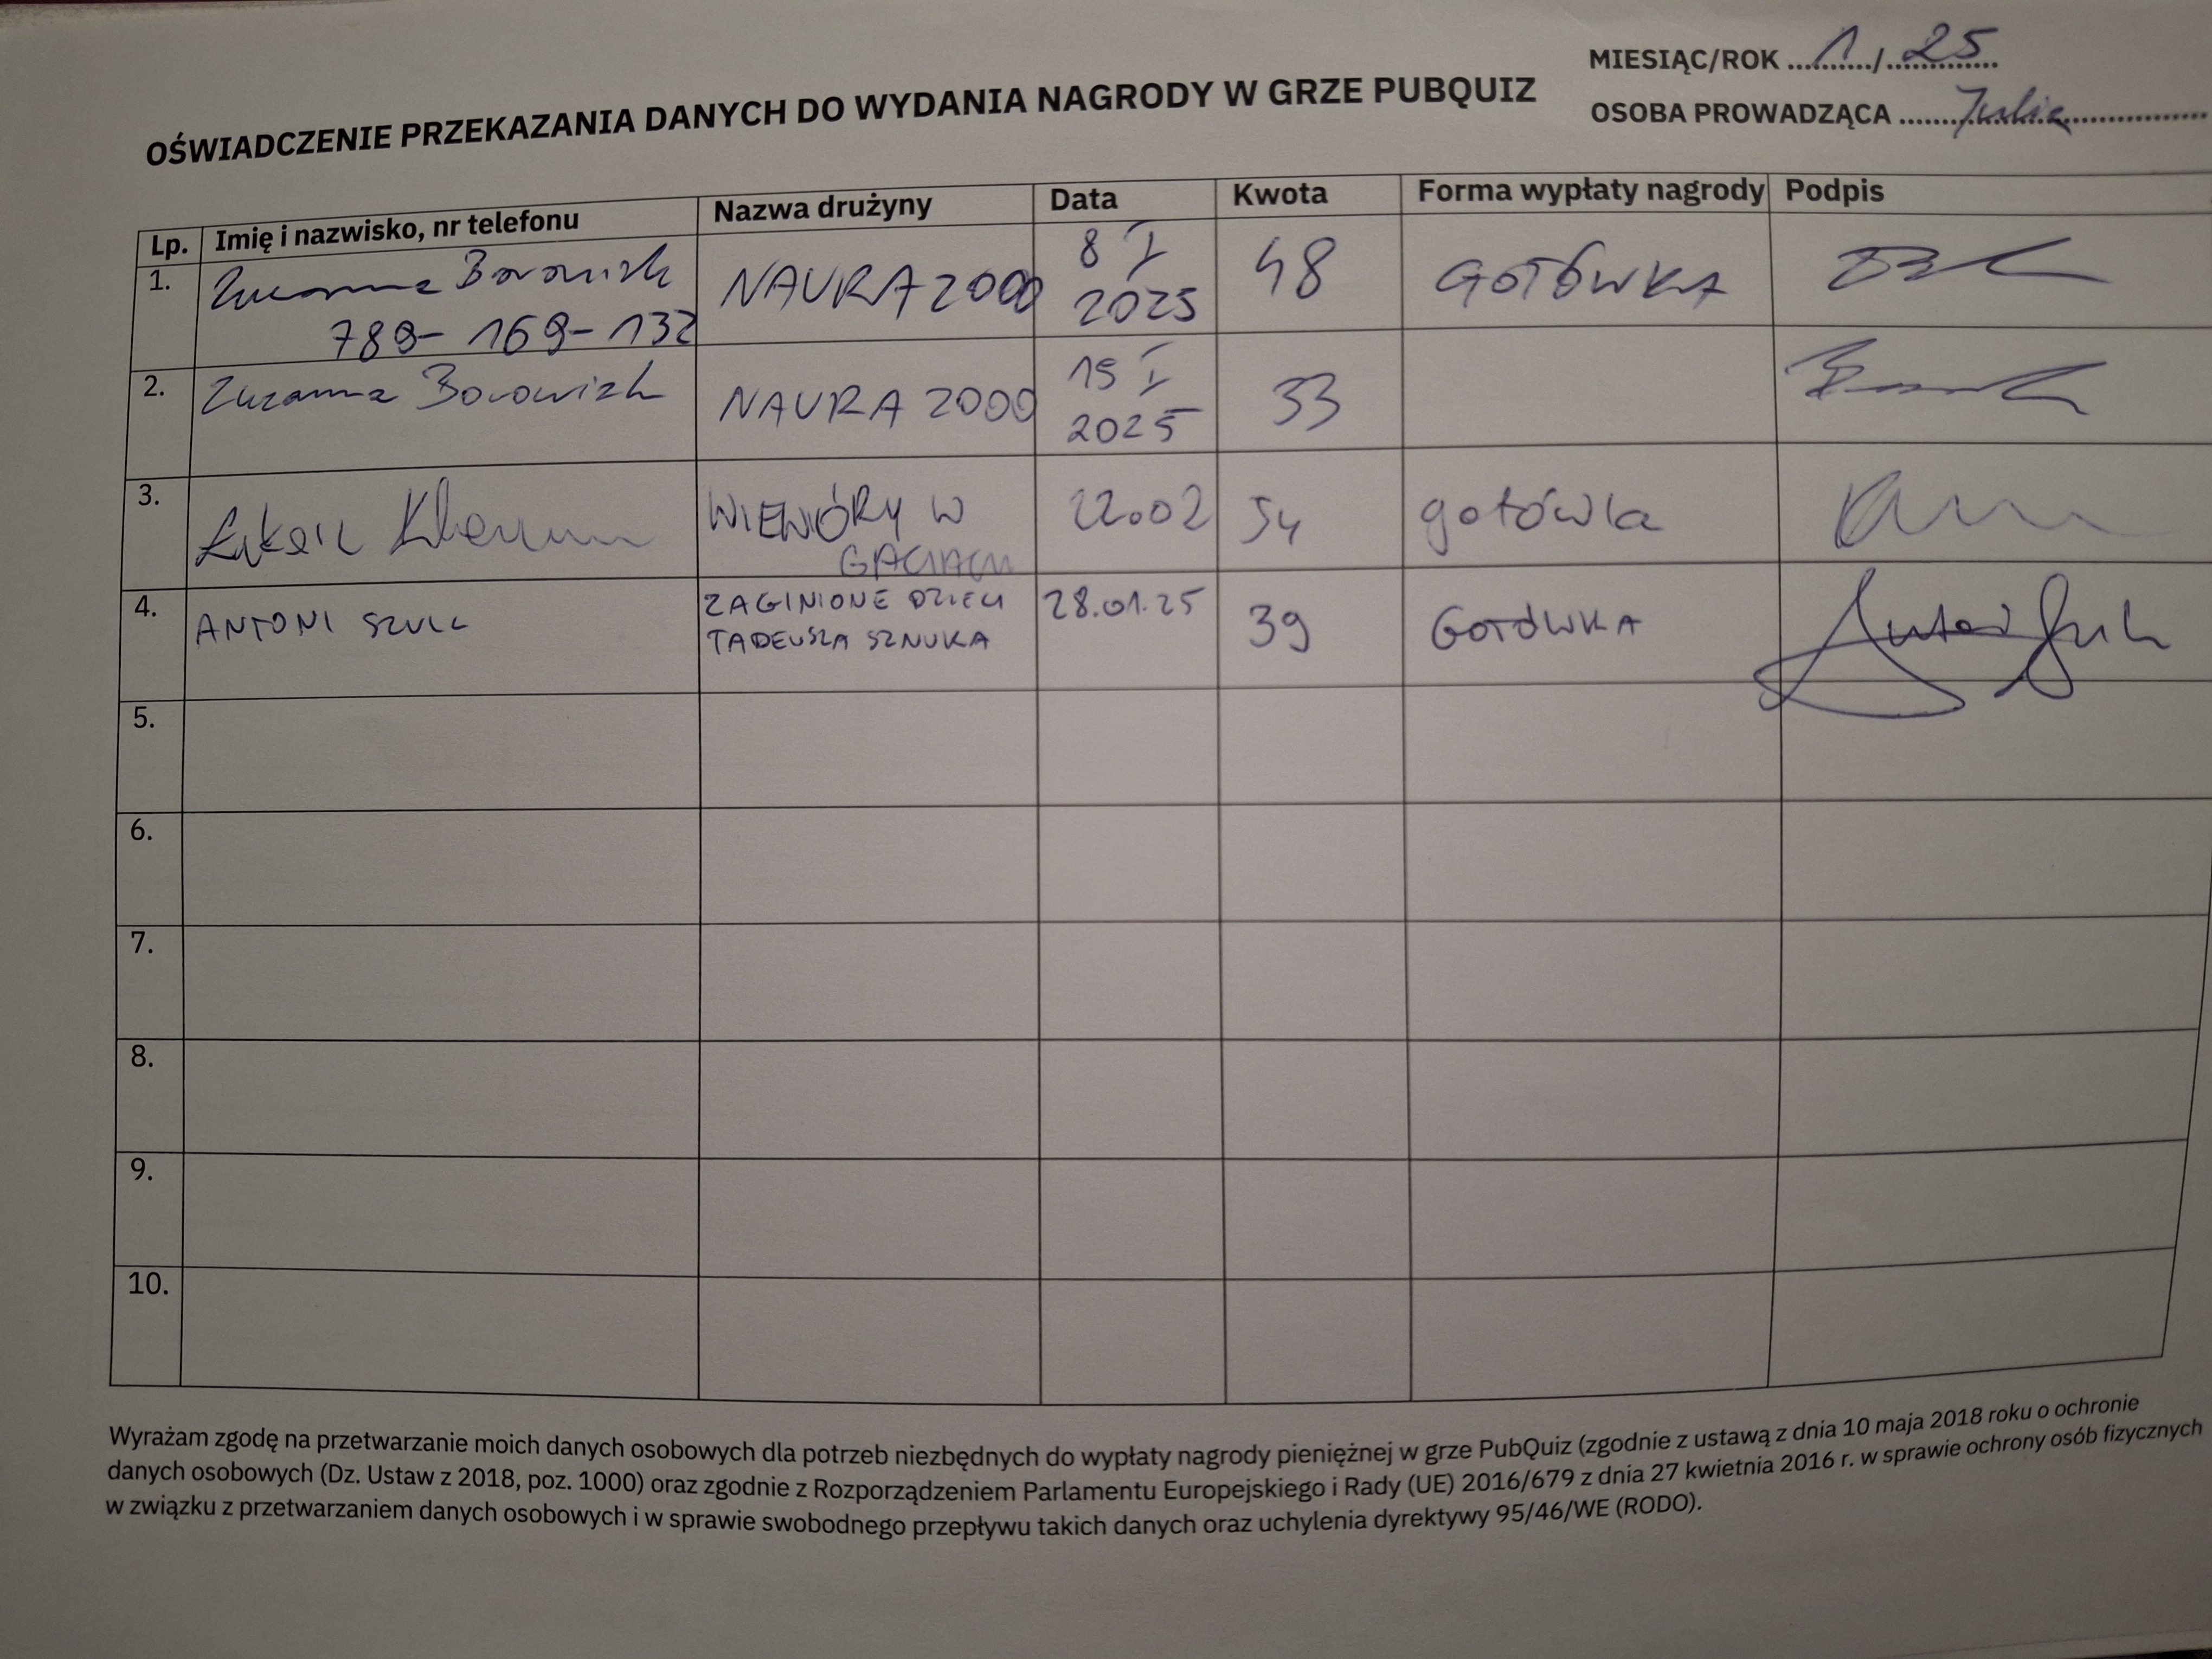 MIESIĄC/ROK ........../............. 1 25
OŚWIADCZENIE PRZEKAZANIA DANYCH DO WYDANIA NAGRODY W GRZE PUBQUIZ
OSOBA PROWADZĄCA ....... Julia
Lp. Imię i nazwisko, nr telefonu Nazwa drużyny Data Kwota Forma wypłaty nagrody Podpis
1. Zuzanna NAURA 2000 8 I 2025 48 GOTÓWKA
789-169-132
2. Zuzanna NAURA 2000 15 I 2025 33
3. WIEWIÓRY W 22.02 54 gotówka
GACIACH
4. ANTONI SZULC ZAGINIONE DZIECI 28.01.25 39 GOTÓWKA
TADEUSZA SZNUKA
5.
6.
7.
8.
9.
10.
Wyrażam zgodę na przetwarzanie moich danych osobowych dla potrzeb niezbędnych do wypłaty nagrody pieniężnej w grze PubQuiz (zgodnie z ustawą z dnia 10 maja 2018 roku o ochronie
danych osobowych (Dz. Ustaw z 2018, poz. 1000) oraz zgodnie z Rozporządzeniem Parlamentu Europejskiego i Rady (UE) 2016/679 z dnia 27 kwietnia 2016 r. w sprawie ochrony osób fizycznych
w związku z przetwarzaniem danych osobowych i w sprawie swobodnego przepływu takich danych oraz uchylenia dyrektywy 95/46/WE (RODO).